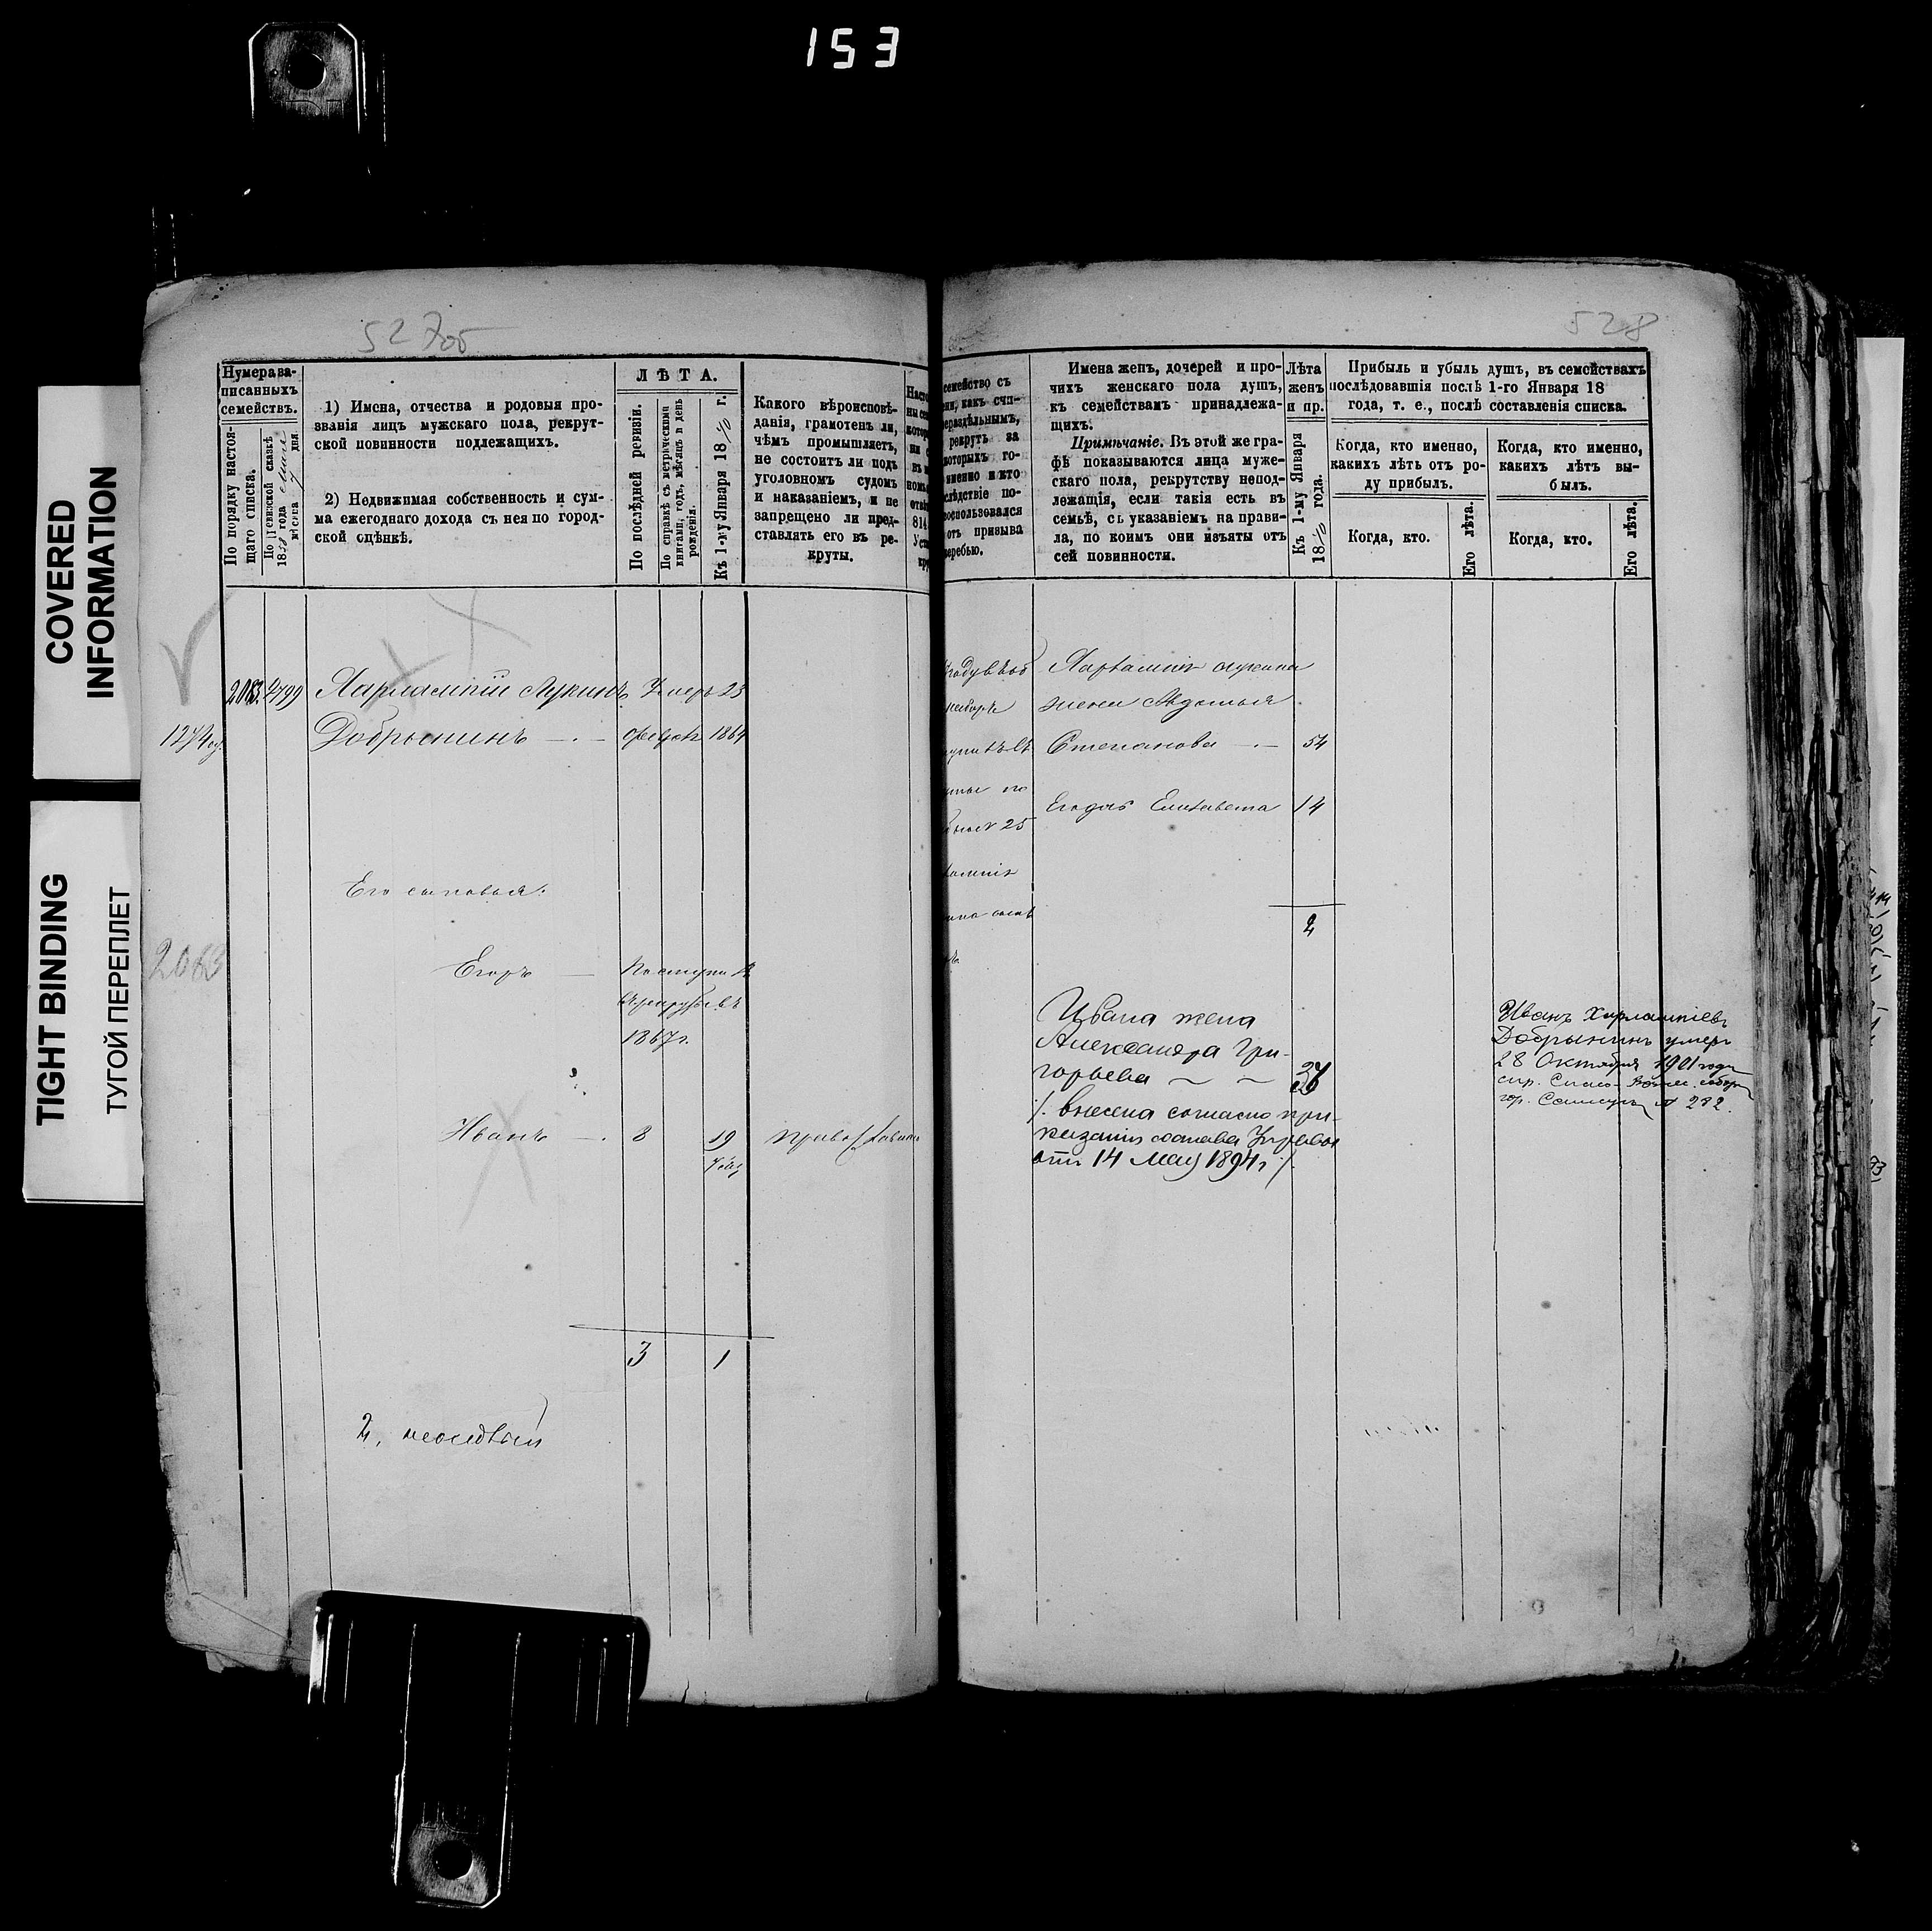 153
COVERED
INFORMATION
TIGHT BINDING
ТУГОЙ ПЕРЕПЛЕТ
527об
528
Нумера за-
писанныхъ
семействъ.
По порядку настоя-
щаго списка.
По ревизской сказкѣ
1858 года
мѣсяца дня
1) Имена, отчества и родовыя про-
званія лицъ мужскаго пола, рекрут-
ской повинности подлежащихъ.
2) Недвижимая собственность и сум-
ма ежегоднаго дохода съ нея по город-
ской оцѣнкѣ.
ЛѢТА.
По послѣдней ревизіи.
По справкѣ съ метрическими
книгами, годъ, мѣсяцъ и день
рожденія.
Къ 1-му Января 1870 г.
Какого вѣроисповѣ-
данія, грамотенъ ли,
чѣмъ промышляетъ,
не состоитъ ли подъ
уголовномъ судомъ
и наказаніемъ, и не
запрещено ли пред-
ставлять его въ ре-
круты.
2083. 2799 Харлампій Лукинъ Умеръ 23
1274 Добрынинъ 1864
Его сыновья:
2083
Егоръ
1867г.
Иванъ 8 19
3 1
2,
семейство съ
какъ счи-
раздѣльнымъ,
рекрутъ за
которыхъ го-
именно и кто
слѣдствіе по-
воспользовался
отъ призыва
жеребью.
25
Имена женъ, дочерей и про-
чихъ женскаго пола душъ,
къ семействамъ принадлежа-
щихъ.
Примѣчаніе. Въ этой же гра-
фѣ показываются лица муже-
скаго пола, рекрутству непод-
лежащія, если такія есть въ
семьѣ, съ указаніемъ на прави-
ла, по коимъ они изъяты отъ
сей повинности.
Лѣта
женъ
и пр.
Къ 1-му Января
1870 года.
Прибыль и убыль душъ, въ семействахъ
послѣдовавшія послѣ 1-го Января 18
года, т. е., послѣ составленія списка.
Когда, кто именно,
какихъ лѣтъ отъ ро-
ду прибылъ.
Когда, кто.
Его лѣта.
Когда, кто именно,
какихъ лѣтъ вы-
былъ.
Когда, кто.
Его лѣта.
Харлампія Лукина
жена Авдотья
Степанова 54
Елизавета 14
2
Ивана жена
Александра Гри-
горьева
внесена согласно при-
казанія состава Управы
отъ 14 Мая 1894г.
Иванъ Харлампіевъ
Добрынинъ умеръ
28 Октября 1901 года
№ 282.